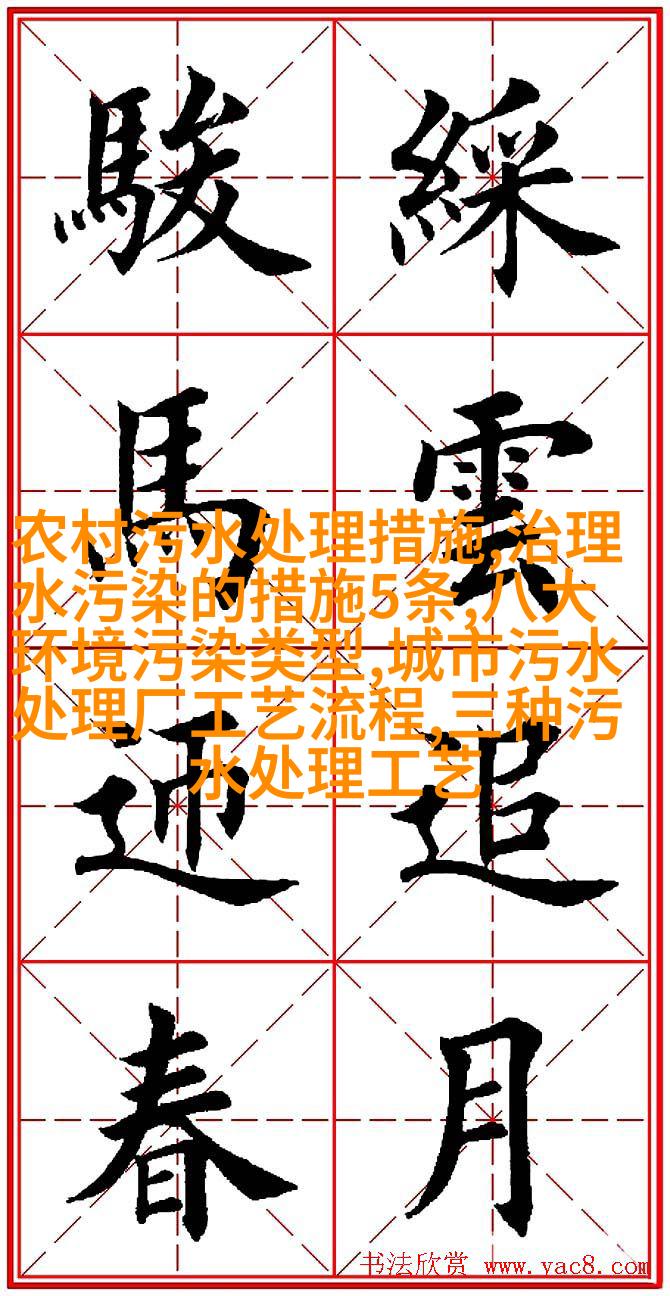 綵雲追月
駿馬迊春
农村污水处理措施,治理
水污染的措施5条,八大
环境污染类型,城市污水
处理厂工艺流程,三种污
水处理工艺
书法欣赏 www.yac8.com